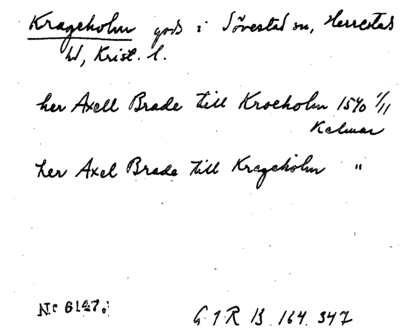 Krageholm gods i Sövestad sn, Herrestad
hd, Krist. l.
her Axell Brade till Kroeholm 1540 1/11
Kalmar
her Axel Brade till Krageholm "
No 6147.
G I R B 164, 347